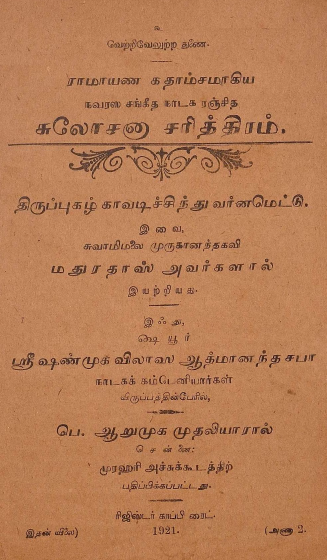 உ
வெற்றிவேலுற்ற துணை.
ராமாயண கதாம்சமாகிய
நவரஸ சங்கீத நாடக ரஞ்சித
சுலோசனா சரித்திரம்.
திருப்புகழ் காவடிச்சிந்து வர்னமெட்டு.
இவை,
சுவாமிமலை முருகானந்தகவி
மதுரதாஸ் அவர்களால்
இயற்றியது.
இஃது,
ஷெ யூர்
ஸ்ரீ ஷண்முக விலாஸ ஆத்மானந்த சபா
நாடகக் கம்பெனியார்கள்
விருப்பத்தின்பேரில்,
பெ. ஆறுமுக முதலியாரால்
சென்னை:
முரஹரி அச்சுக்கூடத்திற்
பதிப்பிக்கப்பட்டது.
ரிஜிஸ்டர் காப்பி ரைட்.
(இதன் விலை) 1921. (அணா 2.